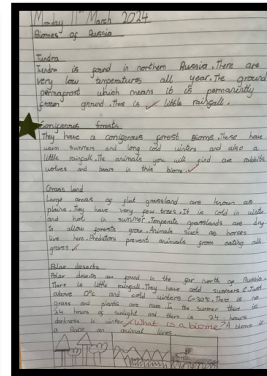 Monday 11th March 2024
Biomes of Russia
Tundra
Tundra is found in northern Russia. There are
very low temperatures all year. The ground
permaprost which means it is permanently
frozen ground. There is little raingall.
Conigerous forests
They have a conigerous forest biome. These have
warm summers and long cold winters and also a
little raingall. The animals you will find are rabbits
wolves and bears in this biome.
Grass land
Large areas of flat grassland are known as
plains. They have very few trees. It is cold in winter
and hot in summer. Temperate grasslands are dry
to allow forests grow. Animals such as horses
live here. Predators prevent animals from eating all
grasses
Polar deserts
Polar deserts are found in the far north of Russia.
There is little raingall. They have cold summers
above 0°c and cold winters There is no
grass and plants are rare. In the summer there is
24 hours of sunlight and there is 24 hours
darkness in winter. What is a biome? A biome is
a place an animal lives